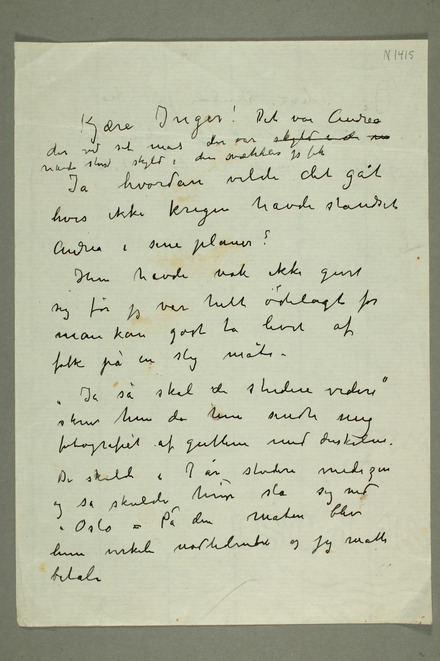 N 1415
Kjære Inger! Det var Andrea
der ved sit mas der var skyld i de
stor skyld i den svækkelse jeg fik
Ja hvordan vilde det gåt
hvis ikke krigen havde standset
Andrea i sine planer?
Hun havde nok ikke givet
sig før jeg var helt ødelagt for
man kan godt ta livet af
folk på en slig måte –
„Ja så skal de studere videre"
skrev hun da hun sendte mig
fotografiet af guttene med duskene.
De skulde i 7 år studere medizin
og så skulde hun sla sig ned
i Oslo = På den maten blev
hun virkelig og jeg matte
betale